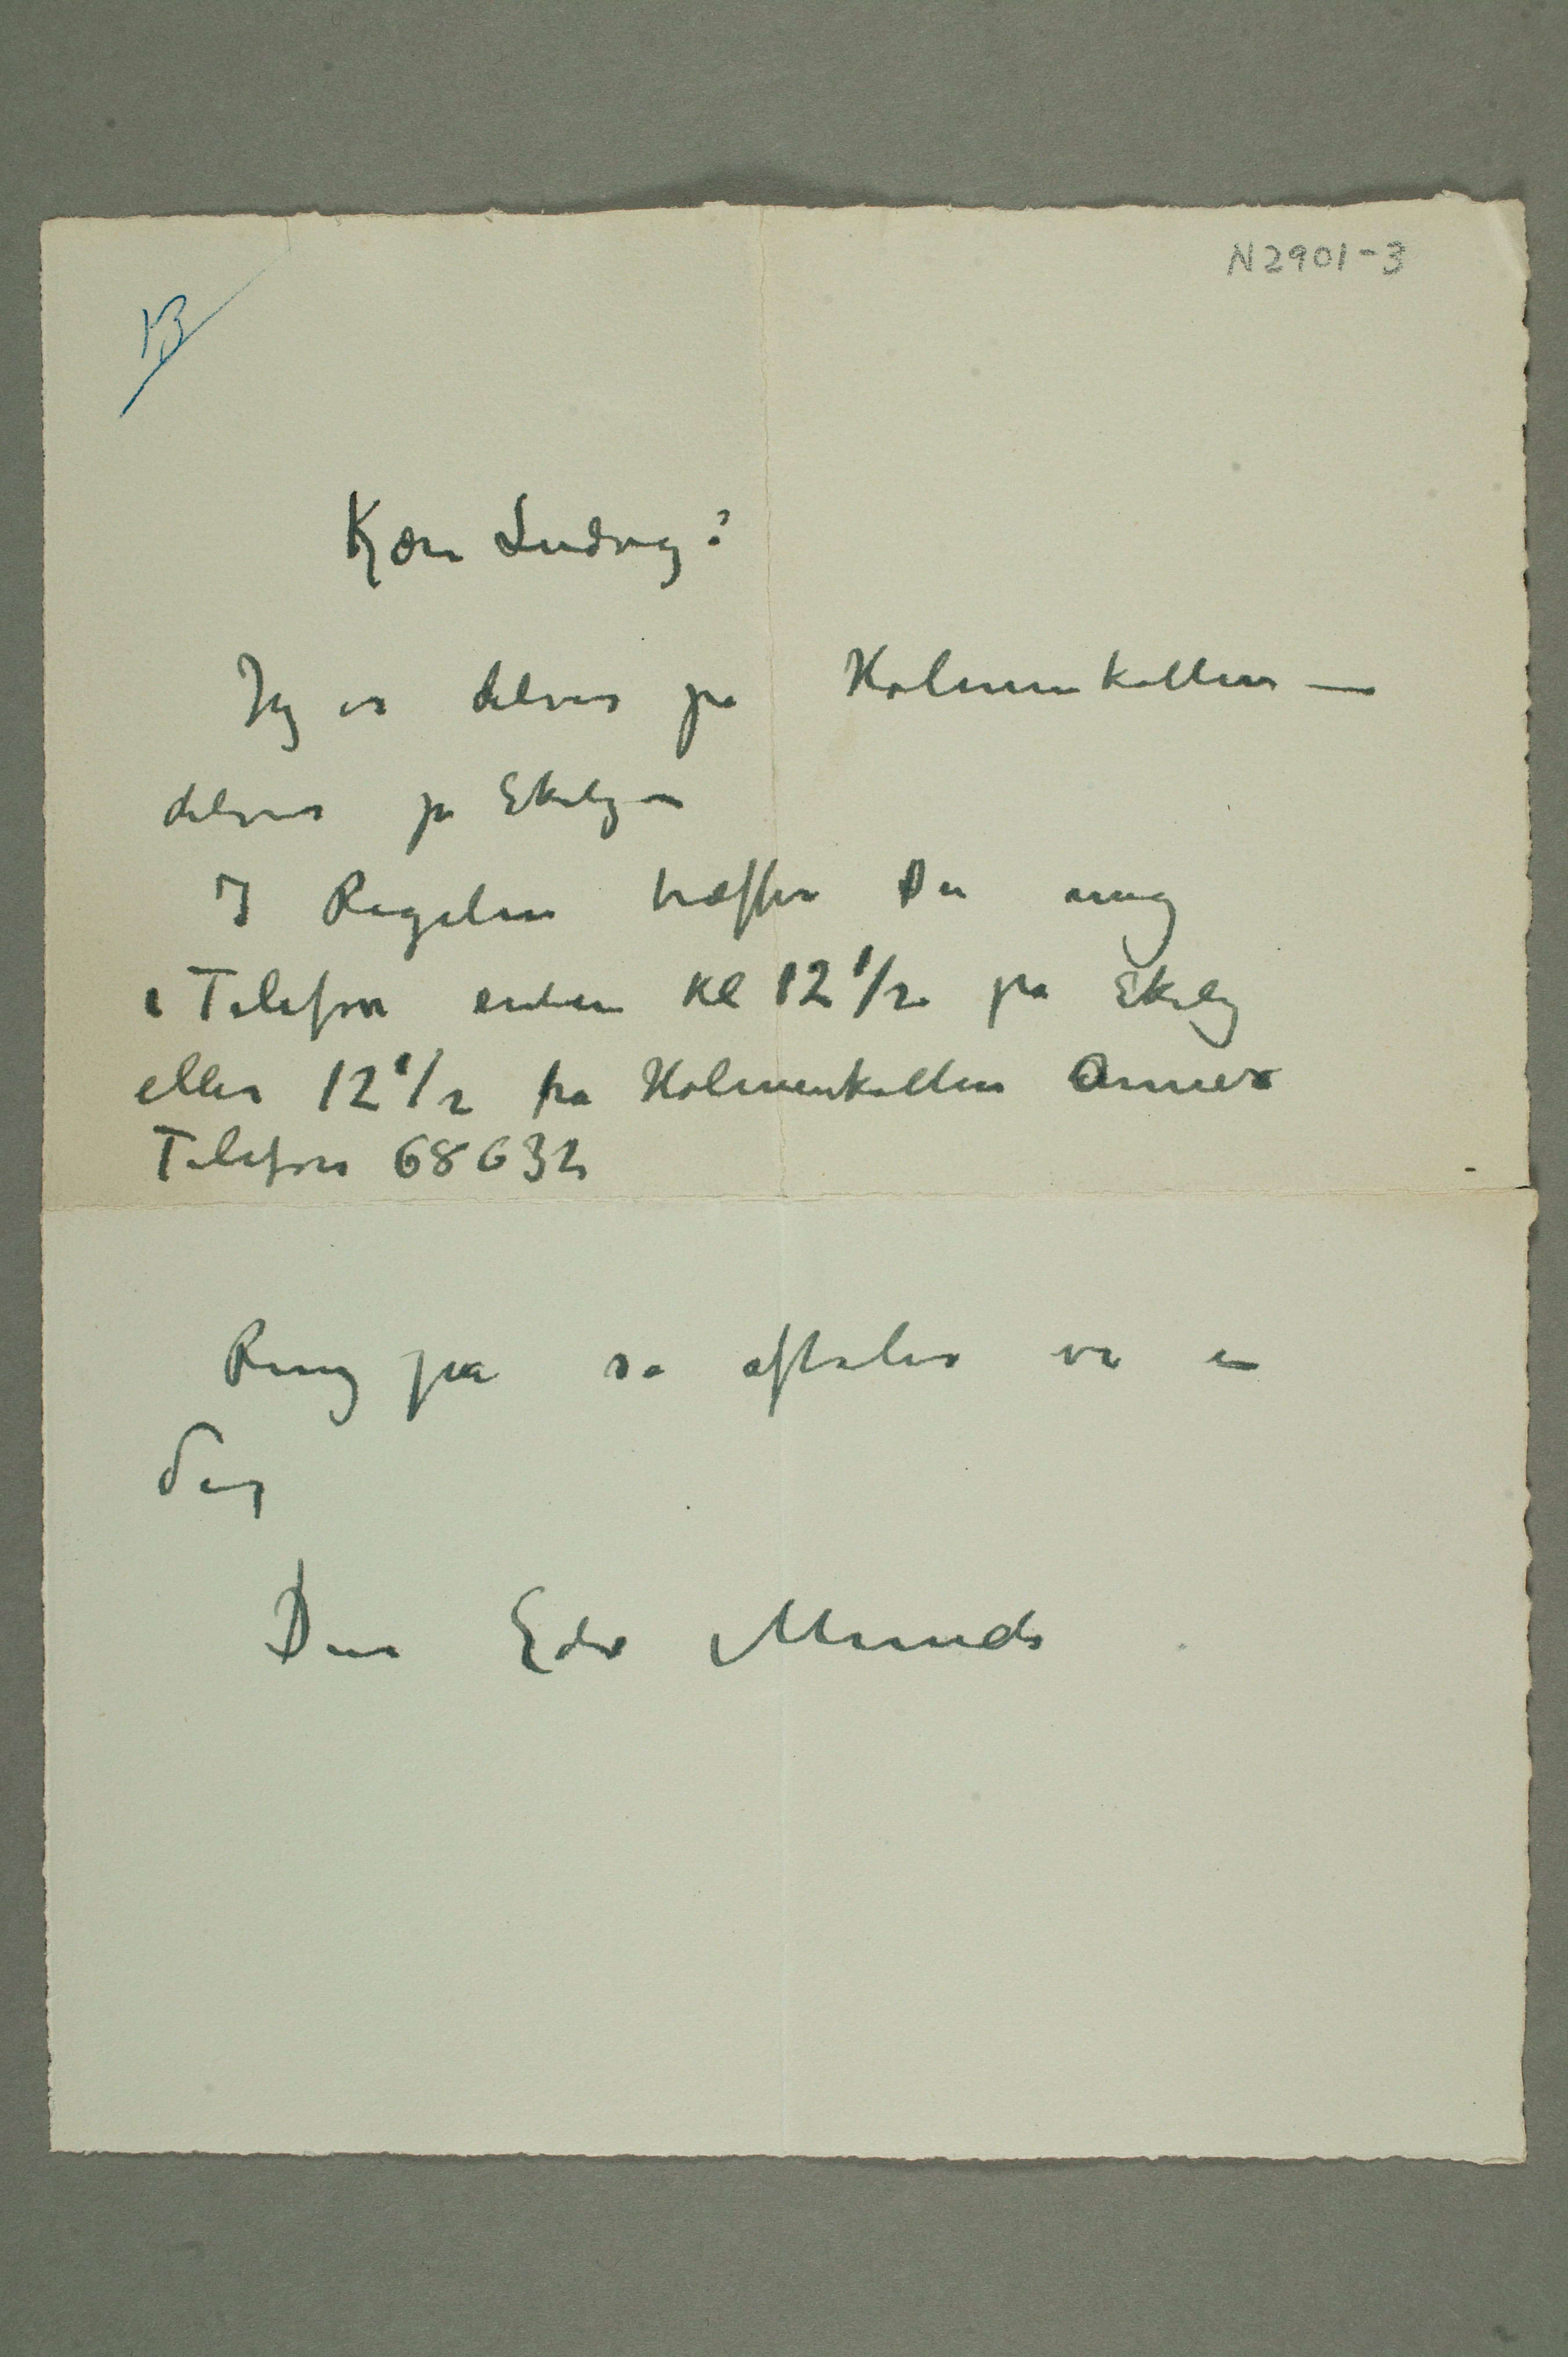 N 2901-3
13
Kjære Ludvig!
Jeg er delvis på Holmenkollen –
delvis på Ekely –
I Regelen træffer Du mig
i Telefon enten Kl 12 1/2 på Ekely
eller 12 1/2 fra Holmenkollen Annex
Telefon 68632
Ring på så aftaler vi en
dag
Din Edv Munch